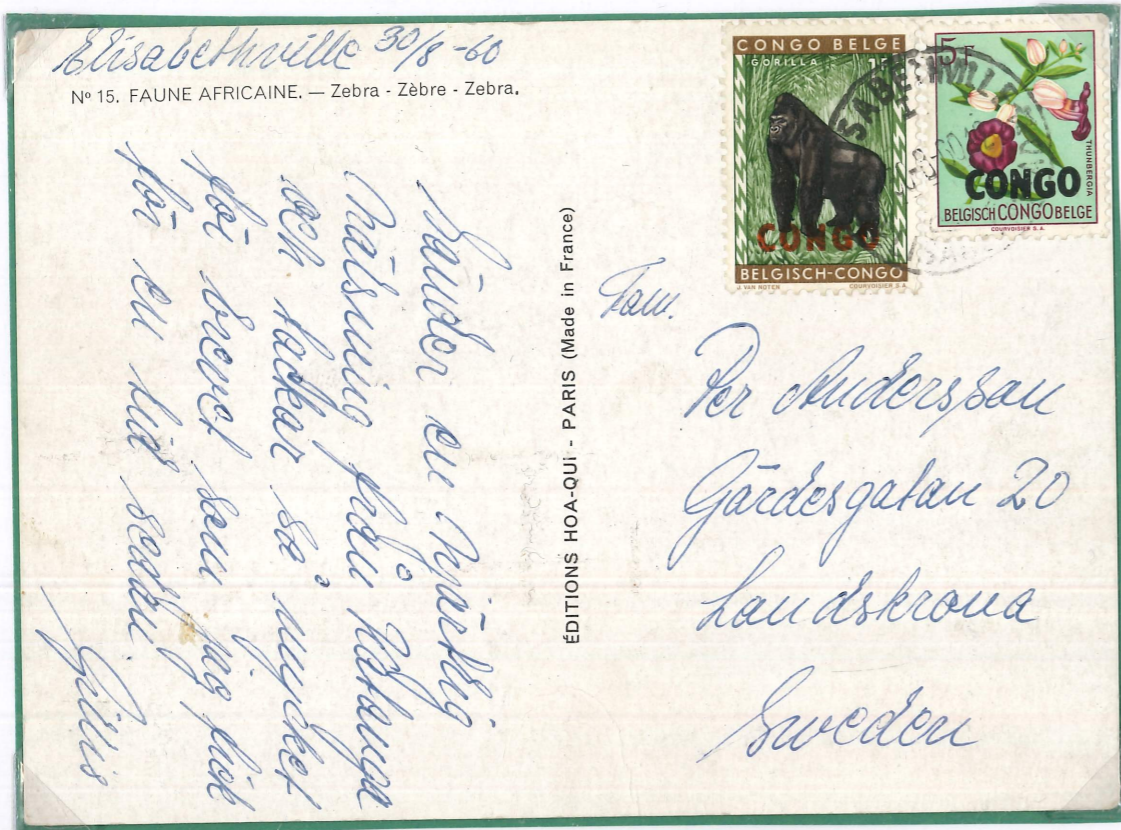 Elisabethville 30/8 -60
Nº 15. FAUNE AFRICAINE. — Zebra - Zèbre - Zebra.
Sänder en hjärtlig
hälsning från Katanga
och tackar så mycket
för brevet som jag fick
för en tid sedan
Gillis
ÉDITIONS HOA-QUI - PARIS (Made in France)
CONGO BELGE
GORILLA
CONGO
BELGISCH-CONGO
J. VAN NOTEN COURVOISIER S.A.
5F
THUNBERGIA
CONGO
BELGISCH CONGO BELGE
COURVOISIER S.A.
Fam.
Per Andersson
Gärdesgatan 20
Landskrona
Sweden